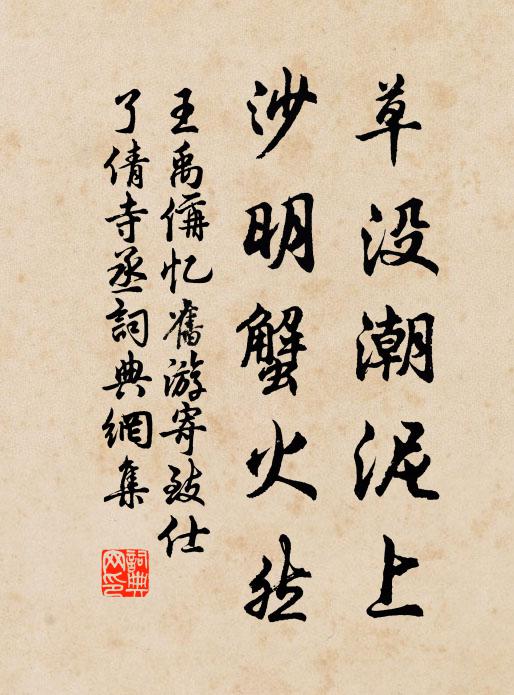 草没潮泥上
沙明蟹火然
王禹偁忆旧游寄致仕
了倩寺丞詞典網集
詞典网印